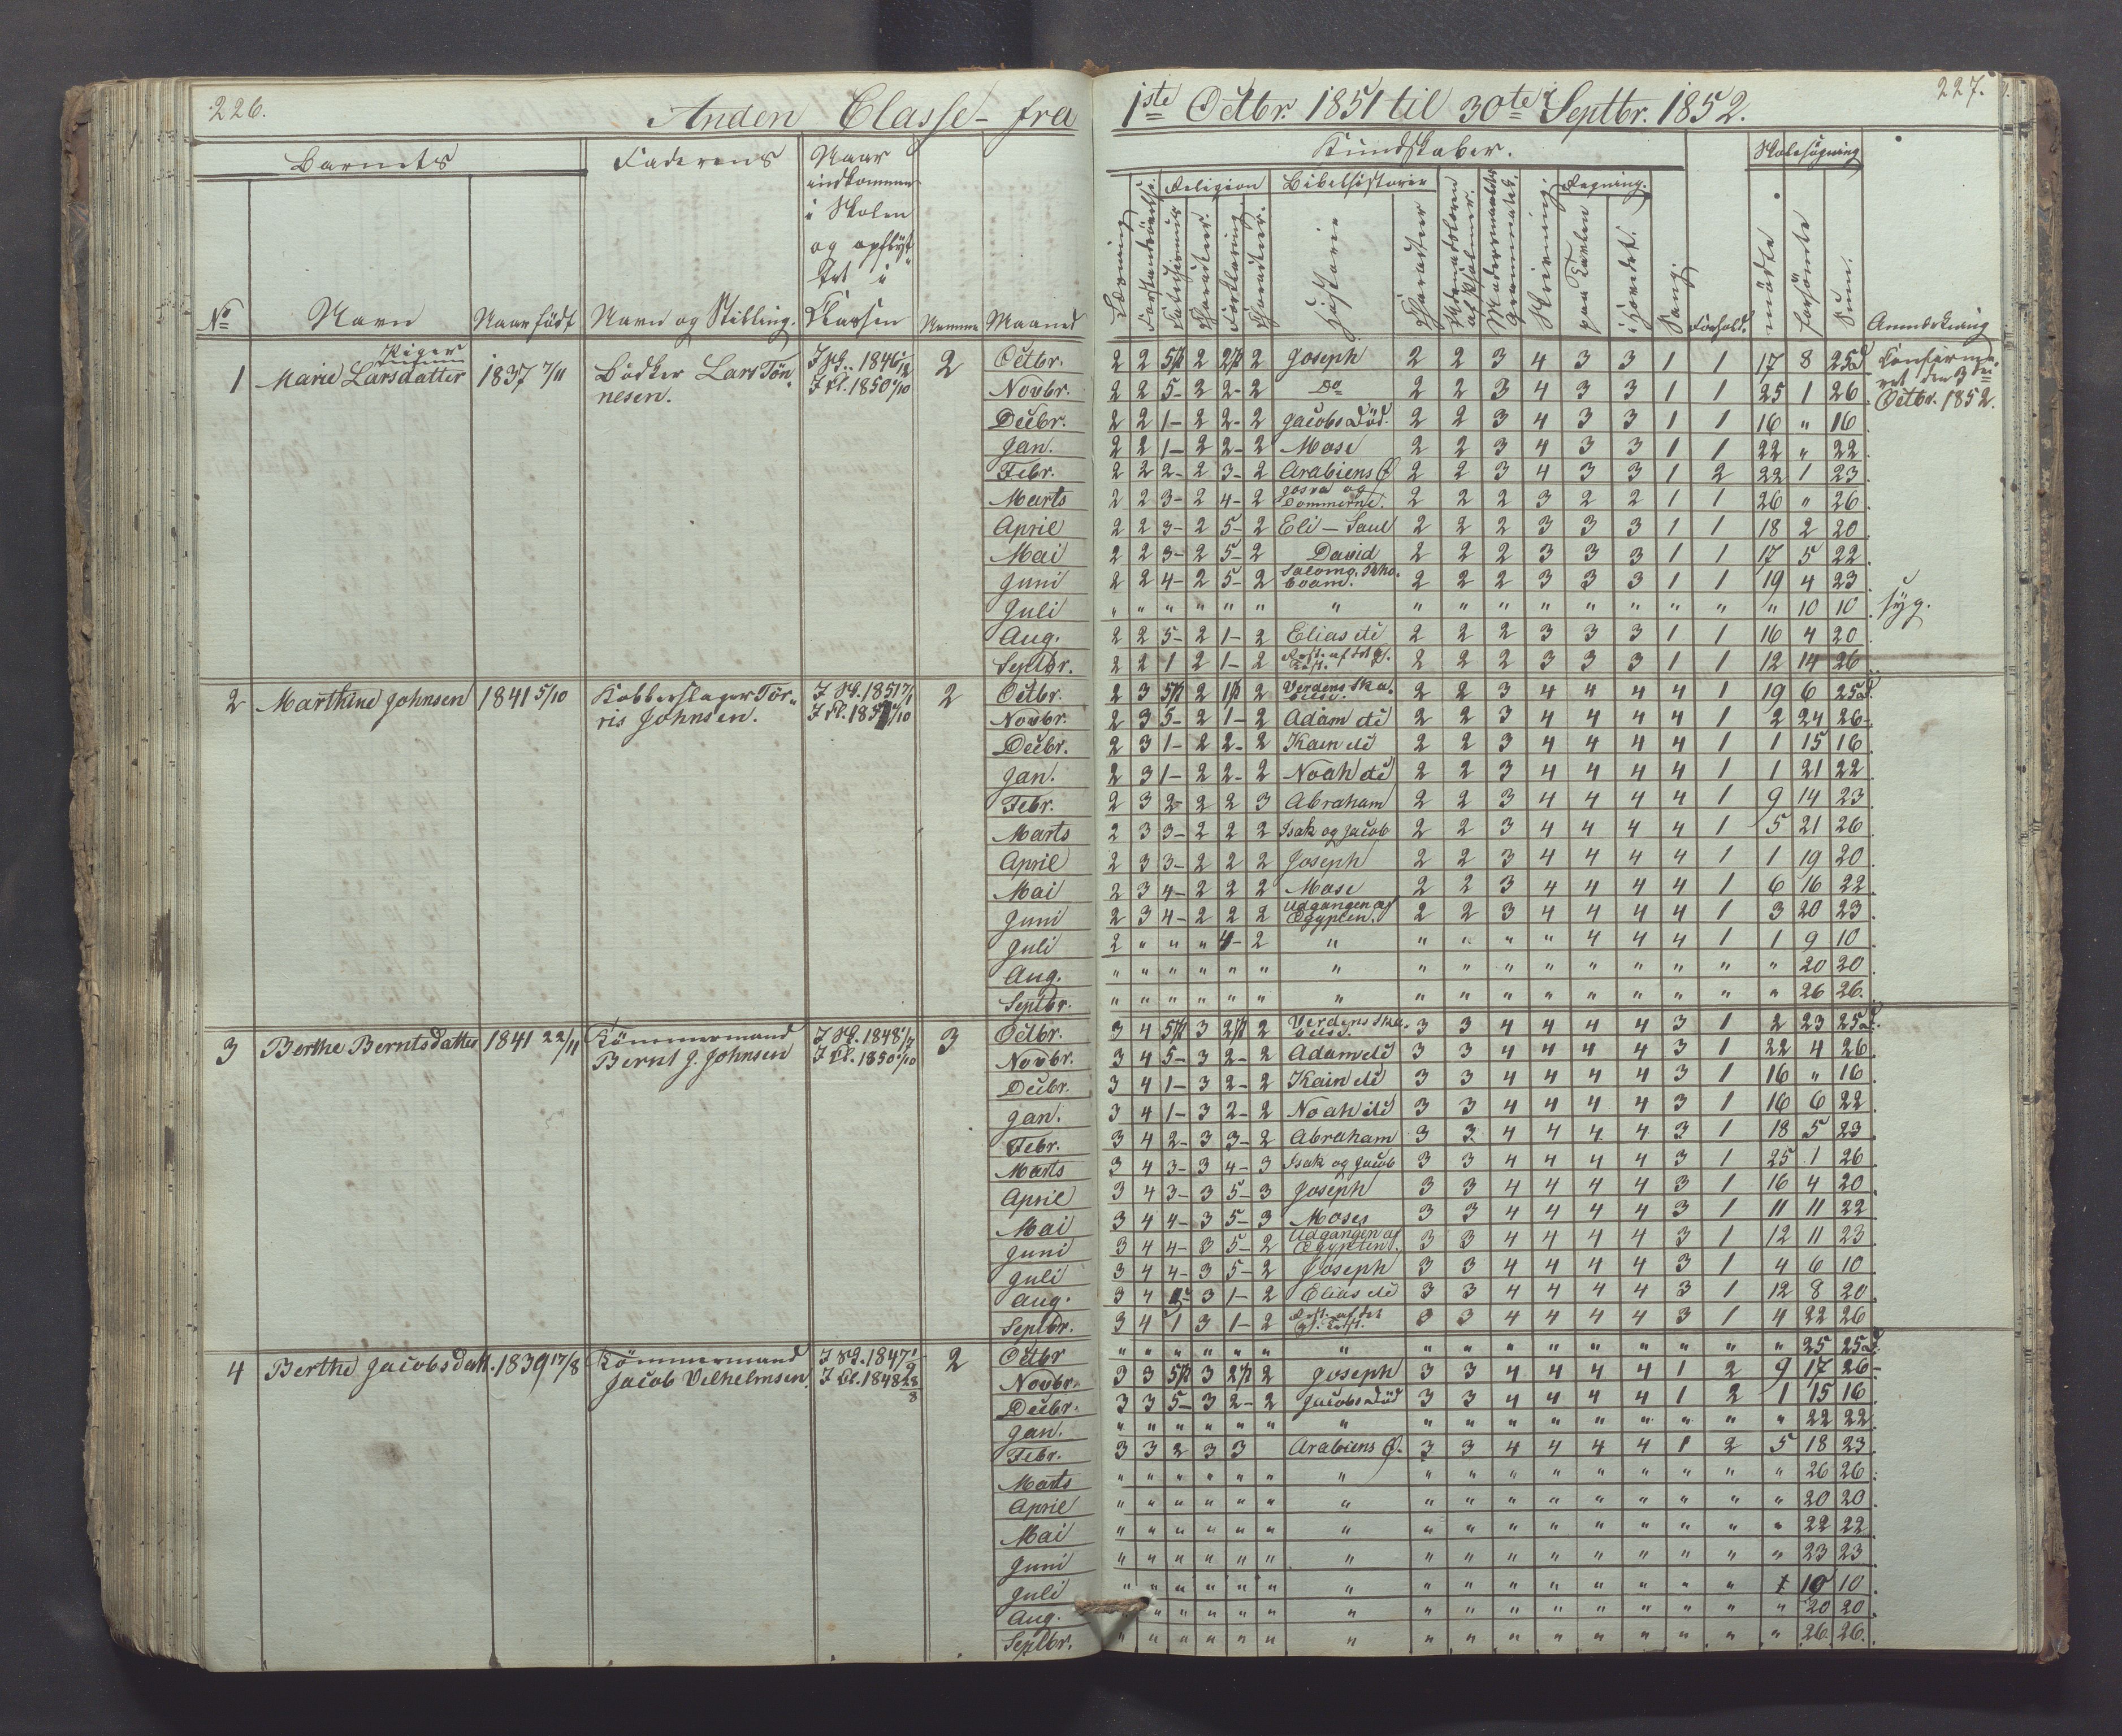 226.
Anden Classe fra
1ste Octbr. 1851 til 30te Septbr. 1852.
227.
Barnets
Faderens
Naar
indkommen
i Skolen
og opflyt-
tet i
Classen
No
Navn
Naar födt
Navn og Stilling.
Numer
Maaned
Kundskaber.
Skolesøgning
Religion
Bibelhistorie
Regning.
Læsning
Forstandsøvelse
Catechismus
Charakteer
Forklaring
Charakteer.
Historie
Charakteer
Skrivning.
paa Tavlen
i Hovedet.
Sang.
Forhold.
mødte
forsömte
Sum.
Anmærkning
Piger
1 Marie Larsdatter 1837 7/11 Bödker Lars Tön-
nesen.
I Kl. 1850 1/10
2
Octbr. 2 2 5 2 2 2 Joseph 2 2 3 4 3 3 1 1 17 8 25d
Novbr. 2 2 5- 2 2- 2 Do 2 2 3 4 3 3 1 1 25 1 26
Decbr. 2 2 1- 2 2- 2 Jacobs Död. 2 2 3 4 3 3 1 1 16 " 16
Jan. 2 2 1- 2 2- 2 Mose 2 2 3 4 3 3 1 1 22 " 22
Febr. 2 2 2- 2 3- 2 Arabiens Ø 2 2 3 4 3 3 1 2 22 1 23
Marts 2 2 3- 2 4- 2 Josva og Dommerne. 2 2 2 3 2 2 1 1 26 " 26
April 2 2 3- 2 5- 2 Eli - Saul 2 2 2 3 3 3 1 1 18 2 20
Mai 2 2 3- 2 5- 2 David 2 2 2 3 3 3 1 1 17 5 22
Juni 2 2 4- 2 5- 2 Salomo. 2 2 2 3 3 3 1 1 19 4 23
Juli " " " " " " " " " " " " " " " " 10 10
Aug. 2 2 5- 2 1- 2 Elias etc 2 2 2 3 3 3 1 1 16 4 20
Septbr. 2 2 1 2 1- 2 2 2 2 3 3 3 1 1 12 14 26
Confirme-
ret den 3die
Octbr. 1852.
syg.
2 Marthine Johnsen 1841 5/10 Kobberslager Tor-
ris Johnsen.
2
Octbr. 2 3 5 2 1 2 Verdens Ska-
belse. 2 2 3 4 4 4 4 1 19 6 25d.
Novbr. 2 3 5- 2 1- 2 Adam etc 2 2 3 4 4 4 4 1 2 24 26-
Decbr. 2 3 1- 2 2- 2 Kain etc 2 2 3 4 4 4 4 1 1 15 16
Jan. 2 3 1- 2 2- 2 Noah etc 2 2 3 4 4 4 4 1 1 21 22
Febr. 2 3 2- 2 2 3 Abraham 2 2 3 4 4 4 4 1 9 14 23
Marts 2 3 3- 2 2 2 Isak og Jacob 2 2 3 4 4 4 4 1 5 21 26
April 2 3 3- 2 2 2 Joseph 2 2 3 4 4 4 4 1 1 19 20
Mai 2 3 4- 2 2 2 Mose 2 2 3 4 4 4 4 1 6 16 22
Juni 2 3 4- 2 2 2 Udgangen af
Ægypten. 2 2 3 4 4 4 4 1 3 20 23
Juli 2 " " " 4- 2 " " " " " 4 4 4 1 1 9 10
Aug. " " " " " " " " " " " " " " " " 20 20
Septbr. " " " " " " " " " " " " " " " " 26 26.
3 Berthe Berntsdatter 1841 22/11 Tömmermand
Bernt J. Johnsen
I Sk. 1848 1/7
I Kl. 1850 1/10
3
Octbr. 3 4 5 3 2 2 Verdens Ska-
belse. 3 3 4 4 4 4 3 1 2 23 25d.
Novbr. 3 4 5- 3 2- 2 Adam etc 3 3 4 4 4 4 3 1 22 4 26
Decbr. 3 4 1- 3 2- 2 Kain etc 3 3 4 4 4 4 3 1 16 " 16
Jan. 3 4 1- 3 2- 2 Noah etc 3 3 4 4 4 4 3 1 16 6 22
Febr. 3 4 2- 3 3- 2 Abraham 3 3 4 4 4 4 3 1 18 5 23
Marts 3 4 3- 3 4- 3 Isak og Jacob 3 3 4 4 4 4 3 1 25 1 26
April 3 4 3- 3 5- 3 Joseph 3 3 4 4 4 4 3 1 16 4 20
Mai 3 4 4- 3 5- 3 Moses 3 3 4 4 4 4 3 1 11 11 22
Juni 3 4 4- 3 5- 2 Udgangen af
Ægypten. 3 3 4 4 4 4 3 1 12 11 23
Juli 3 4 4- 3 5- 2 Joseph 3 3 4 4 4 4 3 1 4 6 10
Aug. 3 4 3 1- 2 Elias etc 3 3 4 4 4 4 3 1 12 8 20
Septbr. 3 4 1 3 1- 2 3 3 4 4 4 4 3 1 4 22 26
4 Berthe Jacobsdatt. 1839 17/8 Tömmermand
Jacob Vilhelmsen.
I Kl. 1848 28/8
2
Octbr " " " " " " " " " " " " " " " " 25 25d.
Novbr. 3 3 5 3 2 2 Joseph 3 3 4 4 4 4 1 2 9 17 26-
Decbr. 3 3 5- 3 2- 2 Jacobs Död 3 3 4 4 4 4 1 2 1 15 16
Jan. " " " " " " " " " " " " " " " " 22 22
Febr. 3 3 2 3 3 Arabiens Ø. 3 3 4 4 4 4 1 2 5 18 23
Marts " " " " " " " " " " " " " " " " 26 26
April " " " " " " " " " " " " " " " " 20 20
Mai " " " " " " " " " " " " " " " " 22 22
Juni " " " " " " " " " " " " " " " " 23 23
Juli " " " " " " " " " " " " " " " 10 10
Aug. " " " " " " " " " " " " " " 20 20
Septbr. " " " " " " " " " " " " " " " " 26. 26.